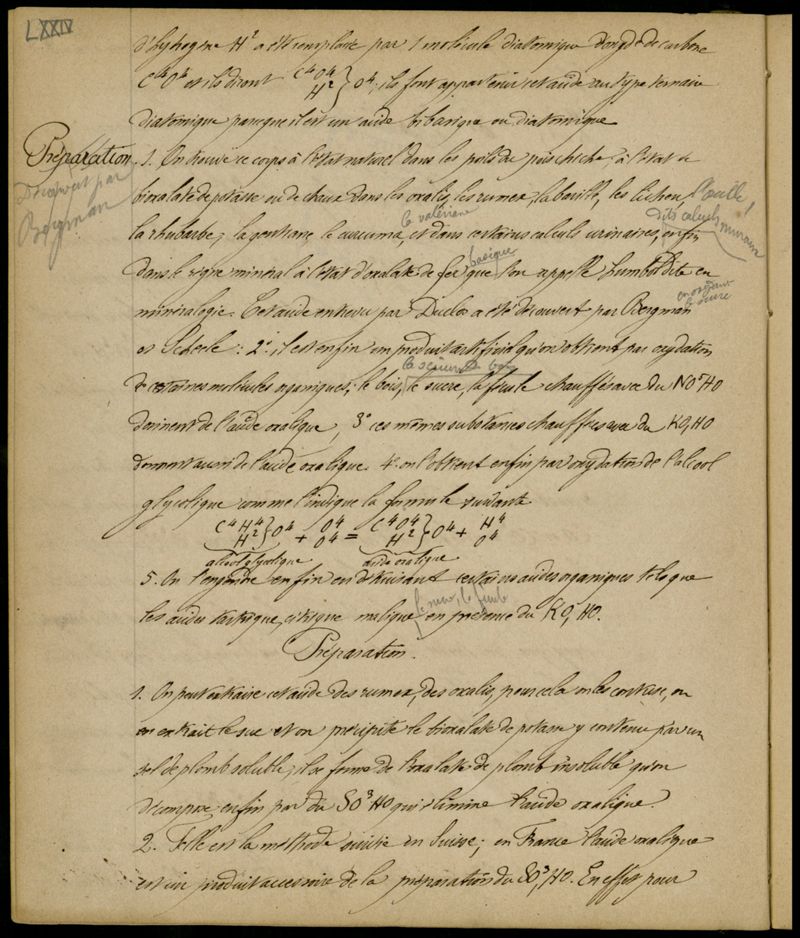 LXXIV
d'hydrogène H² a été remplacé par 1 molécule diatomique d'oxyde de carbone
C⁴O⁴ et ils diront C⁴O⁴ H² } O⁴; ils font appartenir cet acide au type ternaire
diatomique parce que il est un acide bibasique ou diatomique
Préparation. 1. On trouve ce corps à l'état naturel dans les poils du pois chiche à l'état de
Découvert par
Bergman
bioxalate de potasse ou de chaux dans les oxalis, les rumex, la barille, les lichen, l'oseille
la rhubarbe, la gentiane le curcuma, et dans certains calculs urinaires, enfin
la valériane
dits calculs muraux
dans le règne minéral à l'état d'oxalate de fer que l'on appelle Humboldtite en
basique
minéralogie. Cet acide entrevu par Duclos a été découvert par Bergman
en oxydant
le sucre
et Scheele: 2° il est enfin un produit artificiel qu'on obtient par oxydation
la sciure de bois
de certaines molécules organiques; le bois, le sucre, la fécule chauffés avec du NO⁵HO
donnent de l'acide oxalique, 3° ces mêmes substances chauffées avec du KO,HO
donnent aussi de l'acide oxalique. 4° on l'obtient enfin par oxydation de l'alcool
glycolique comme l'indique la formule suivante
C⁴H⁴ H² } O⁴ + O⁴ O⁴ = C⁴O⁴ H² } O⁴ + H⁴ O⁴
alcool glycolique acide oxalique
5. On l'engendre enfin en détruisant certains acides organiques tels que
le sucre, la fécule
les acides tartrique, citrique malique en présence du KO,HO.
Préparation.
1. On peut extraire cet acide des rumex, des oxalis, pour cela on les contuse, on
en extrait le suc et on précipite le bioxalate de potasse y contenu par un
sel de plomb soluble, il se forme de l'oxalate de plomb insoluble qu'on
décompose enfin par du SO³HO qui élimine l'acide oxalique.
2. Telle est la méthode suivie en Suisse; en France l'acide oxalique
est un produit accessoire de la préparation du SO³,HO. En effet pour